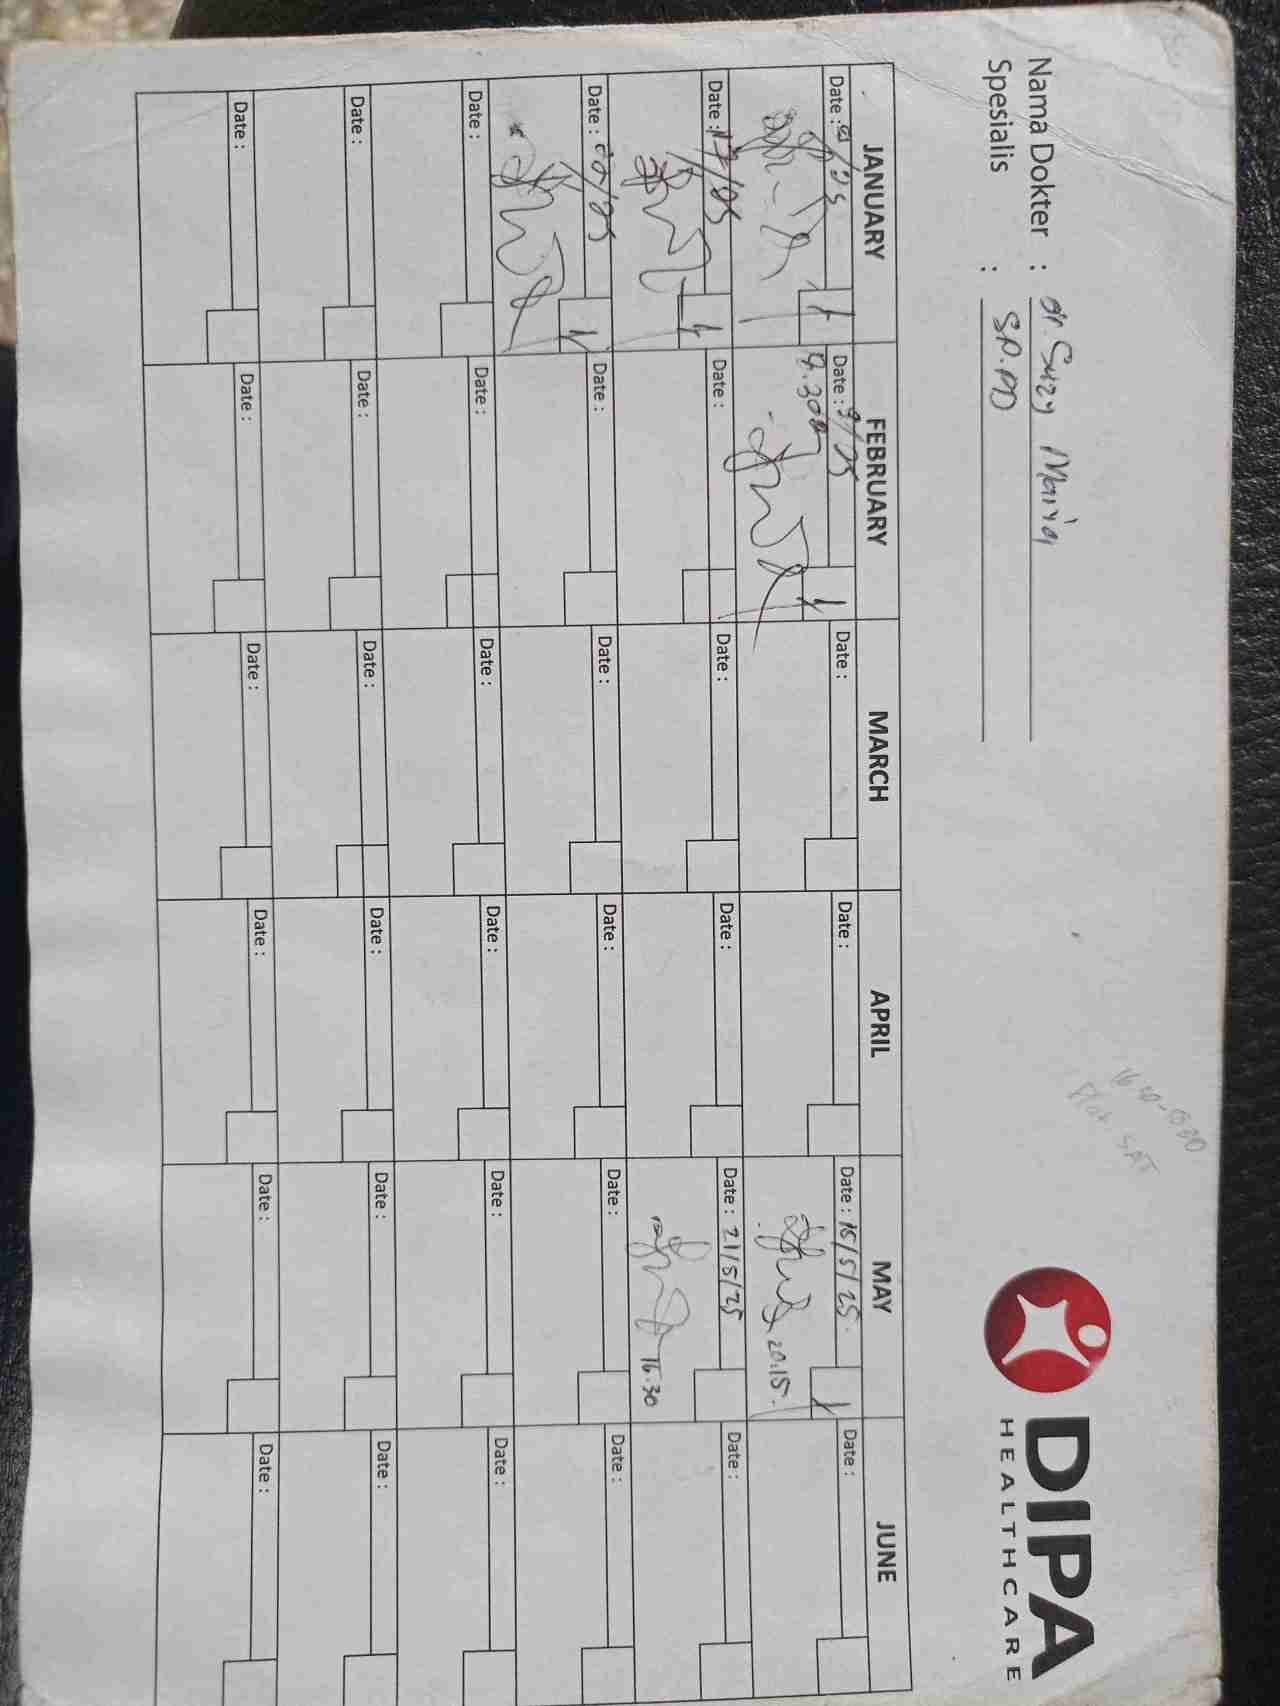 Nama Dokter : dr Suzy Maria
Spesialis : SP.PD
DIPA
HEALTHCARE
JANUARY FEBRUARY MARCH APRIL MAY JUNE
Date : Date : 9/25 Date : Date : Date : 15/5/25 Date :
20.15
Date : 17/25 Date : Date : Date : Date : 21/5/25 Date :
16.30
Date : Date : Date : Date : Date : Date :
Date : Date : Date : Date : Date : Date :
Date : Date : Date : Date : Date : Date :
Date : Date : Date : Date : Date : Date :